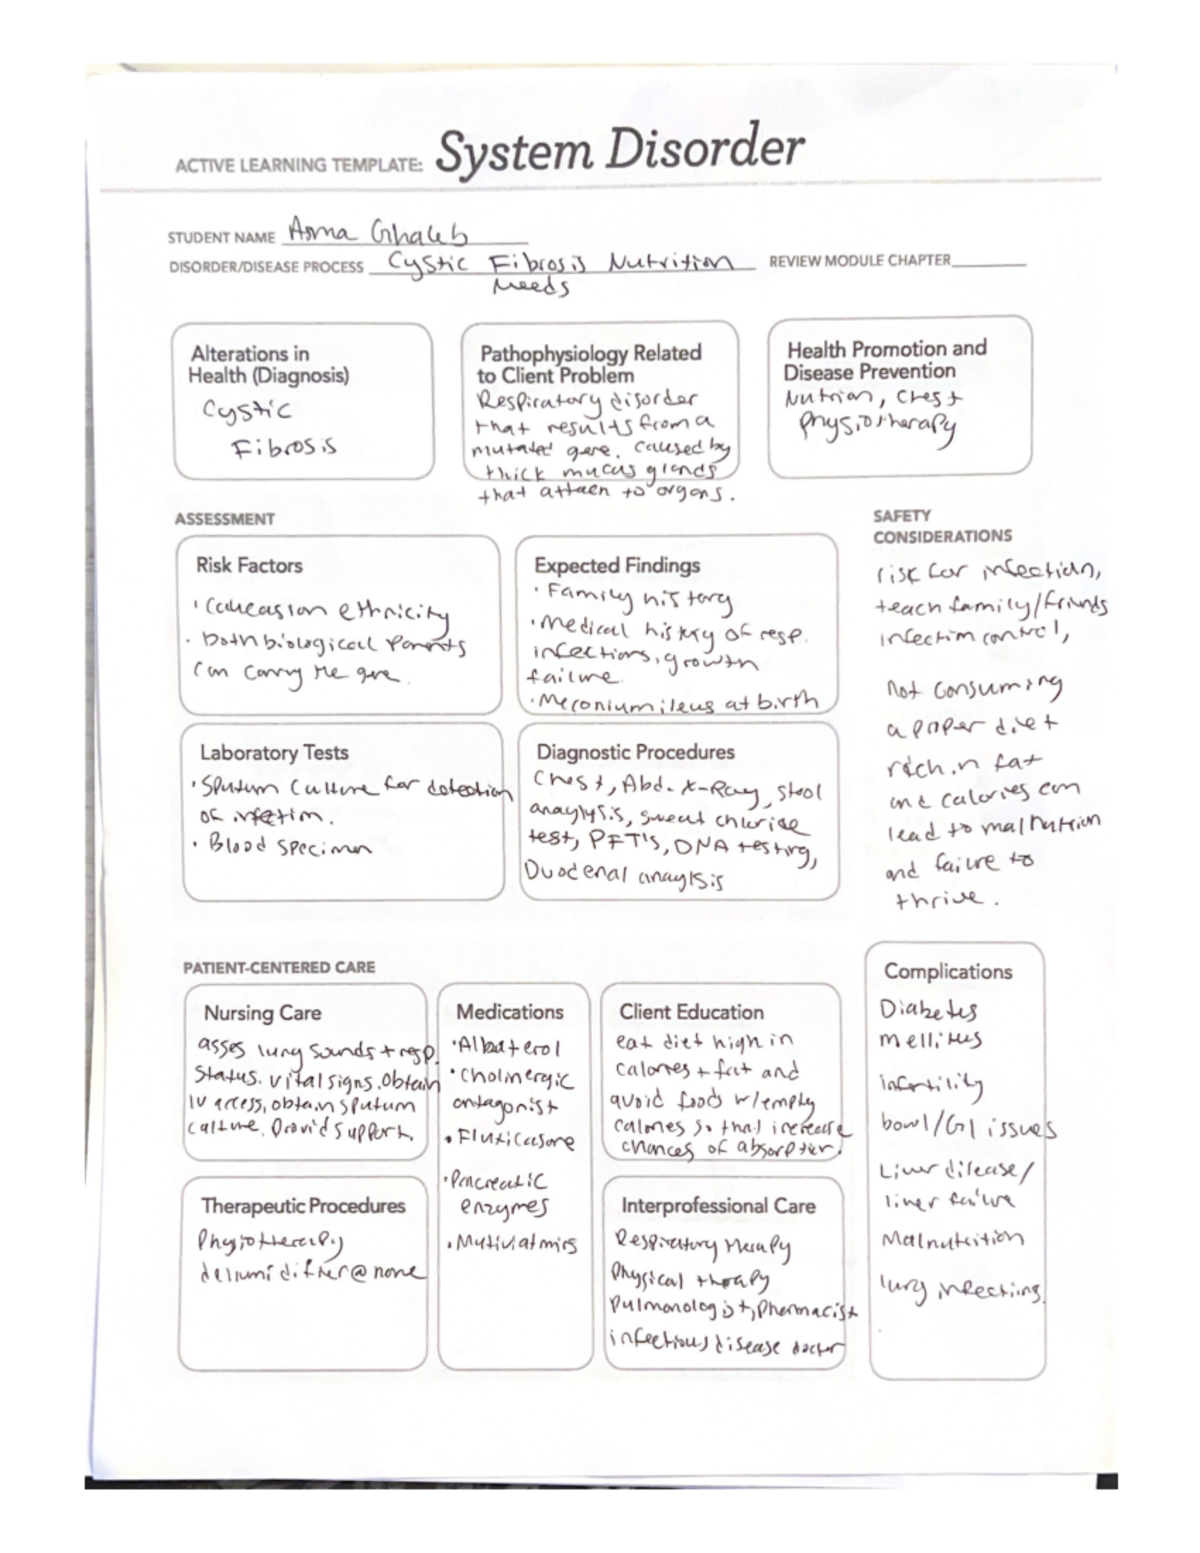 ACTIVE LEARNING TEMPLATE: System Disorder
STUDENT NAME Asma Ghaleb
DISORDER/DISEASE PROCESS Cystic Fibrosis Nutrition REVIEW MODULE CHAPTER
Needs
Alterations in
Health (Diagnosis)
Cystic
Fibrosis
Pathophysiology Related
to Client Problem
Respiratory disorder
that results from a
mutated gene. caused by
thick mucus glands
that attach to organs.
Health Promotion and
Disease Prevention
Nutrion, chest
physiotherapy
ASSESSMENT
Risk Factors
• Caucasion ethnicity
• both biological parents
can carry the gene.
Expected Findings
• Family history
• Medical history of resp.
infections, growth
failure
• Meconium ileus at birth
SAFETY
CONSIDERATIONS
risk for infection,
teach family/friends
infection control,
Not consuming
a proper diet
rich in fat
and calories can
lead to malnutrion
and failure to
thrive.
Laboratory Tests
• Sputum culture for detection
of infection.
• Blood specimen
Diagnostic Procedures
Chest, Abd. X-Ray, stool
anaylysis, sweat chloride
test, PFT's, DNA testing,
Duodenal anaylsis
PATIENT-CENTERED CARE
Nursing Care
asses lung sounds + resp.
status. vital signs. Obtain
IV access, obtain sputum
culture. Provid support.
Medications
• Albuterol
• Cholinergic
antagonist
• Fluticasone
• Pancreatic
enzymes
Client Education
eat diet high in
calories + fat and
avoid food w/empty
calories so that increase
chances of absorption.
Therapeutic Procedures
Physiotherapy
Interprofessional Care
Respiratory therapy
Physical therapy
Pulmonologist, Pharmacist
infectious disease doctor
Complications
Diabetes
mellitus
infertility
bowl/GI issues
Liver disease/
liver failure
Malnutrition
lung infections.